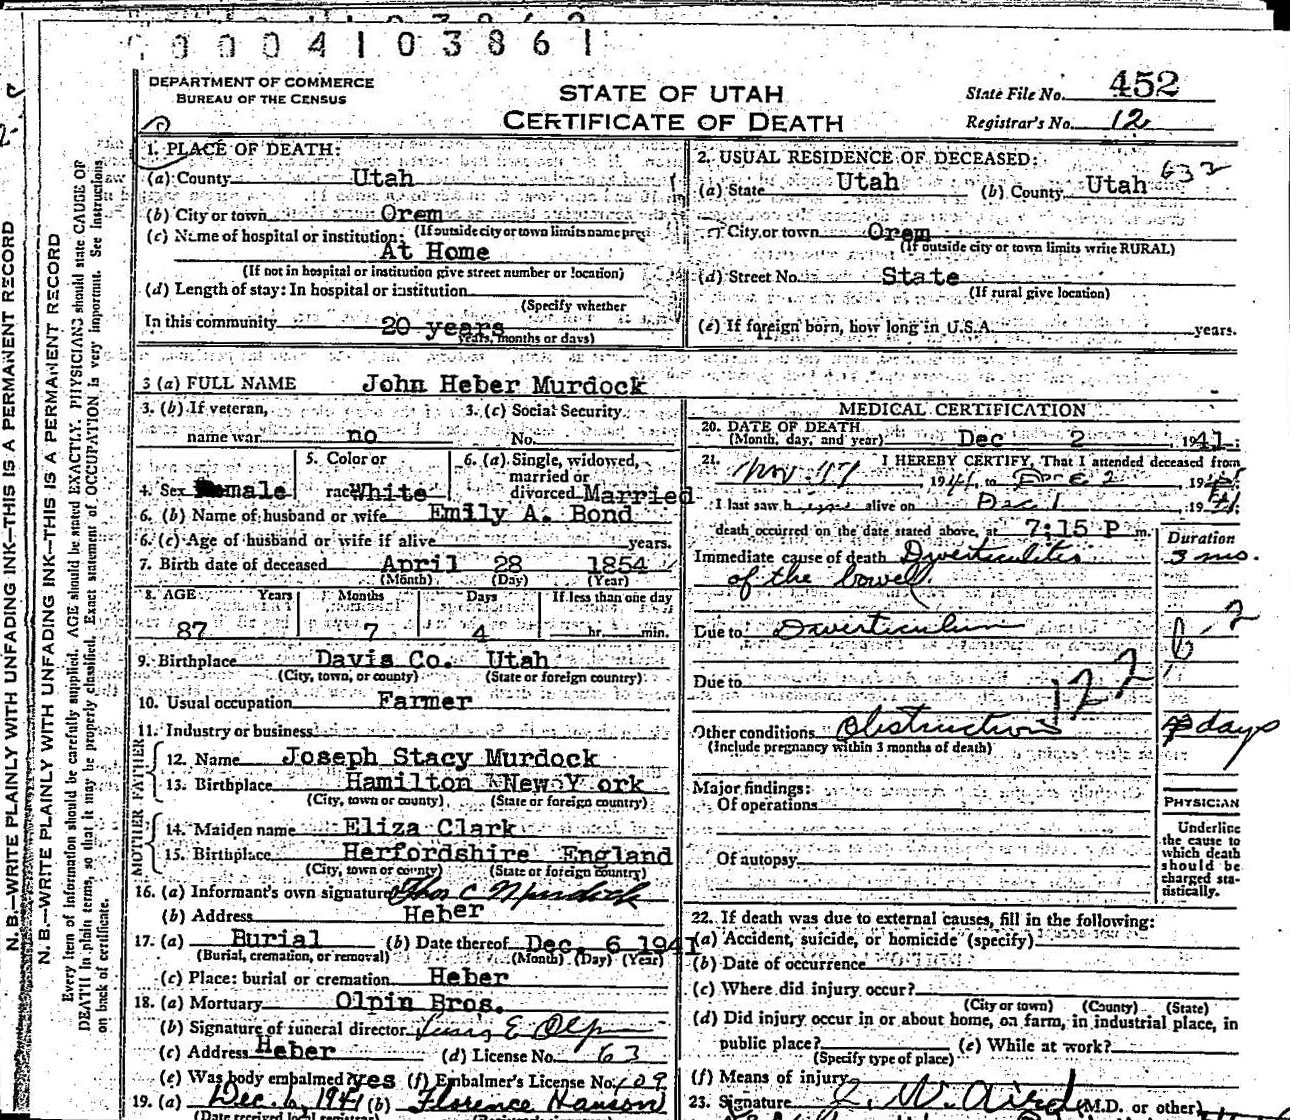 0004103861
DEPARTMENT OF COMMERCE
BUREAU OF THE CENSUS
STATE OF UTAH
CERTIFICATE OF DEATH
State File No. 452
Registrar's No. 12
N. B.—WRITE PLAINLY WITH UNFADING INK—THIS IS A PERMANENT RECORD
N. B.—WRITE PLAINLY WITH UNFADING INK—THIS IS A PERMANENT RECORD
Every item of information should be carefully supplied. AGE should be stated EXACTLY. PHYSICIANS should state CAUSE OF
DEATH in plain terms, so that it may be properly classified. Exact statement of OCCUPATION is very important. See instructions
on back of certificate.
1. PLACE OF DEATH:
(a) County Utah
(b) City or town Orem
(If outside city or town limits name
(c) Name of hospital or institution:
At Home
(If not in hospital or institution give street number or location)
(d) Length of stay: In hospital or institution
(Specify whether
In this community 20 years
years, months or days)
2. USUAL RESIDENCE OF DECEASED:
(a) State Utah (b) County Utah 633
City or town Orem
(If outside city or town limits write RURAL)
(d) Street No. State
(If rural give location)
(e) If foreign born, how long in U.S.A. years.
3 (a) FULL NAME John Heber Murdock
3. (b) If veteran, name war no
3. (c) Social Security No.
4. Sex male
5. Color or race White
6. (a) Single, widowed, married or divorced Married
6. (b) Name of husband or wife Emily A. Bond
6. (c) Age of husband or wife if alive years.
7. Birth date of deceased April 28 1854
(Month) (Day) (Year)
8. AGE Years Months Days If less than one day
87 7 4 hr. min.
9. Birthplace Davis Co. Utah
(City, town, or county) (State or foreign country)
10. Usual occupation Farmer
11. Industry or business
FATHER
12. Name Joseph Stacy Murdock
13. Birthplace Hamilton New Y ork
(City, town or county) (State or foreign country)
MOTHER
14. Maiden name Eliza Clark
15. Birthplace Herfordshire England
(City, town or county) (State or foreign country)
16. (a) Informant's own signature Thos C Murdock
(b) Address Heber
17. (a) Burial (b) Date thereof Dec. 6 1941
(Burial, cremation, or removal) (Month) (Day) (Year)
(c) Place: burial or cremation Heber
18. (a) Mortuary Olpin Bros.
(b) Signature of funeral director E Olpin
(c) Address Heber (d) License No. 63
(e) Was body embalmed? yes (f) Embalmer's License No. 109
19. (a) Dec. 6, 1941 (b) Florence Hanson
(Date received local registrar)
MEDICAL CERTIFICATION
20. DATE OF DEATH
(Month, day, and year) Dec 2, 1941.
21. I HEREBY CERTIFY, That I attended deceased from
Nov. 17, 1941, to Dec 2, 19
I last saw him alive on Dec 1, 1941.
death occurred on the date stated above, at 7:15 P m.
Duration
Immediate cause of death Diverticulitis 3 mo.
of the bowel.
Due to Diverticulum
Due to
122
Other conditions Obstruction days
(Include pregnancy within 3 months of death)
Major findings:
Of operations
Of autopsy
PHYSICIAN
Underline
the cause to
which death
should be
charged sta-
tistically.
22. If death was due to external causes, fill in the following:
(a) Accident, suicide, or homicide (specify)
(b) Date of occurrence
(c) Where did injury occur?
(City or town) (County) (State)
(d) Did injury occur in or about home, on farm, in industrial place, in
public place? (e) While at work?
(Specify type of place)
(f) Means of injury
23. Signature W. Aird (M.D. or other)